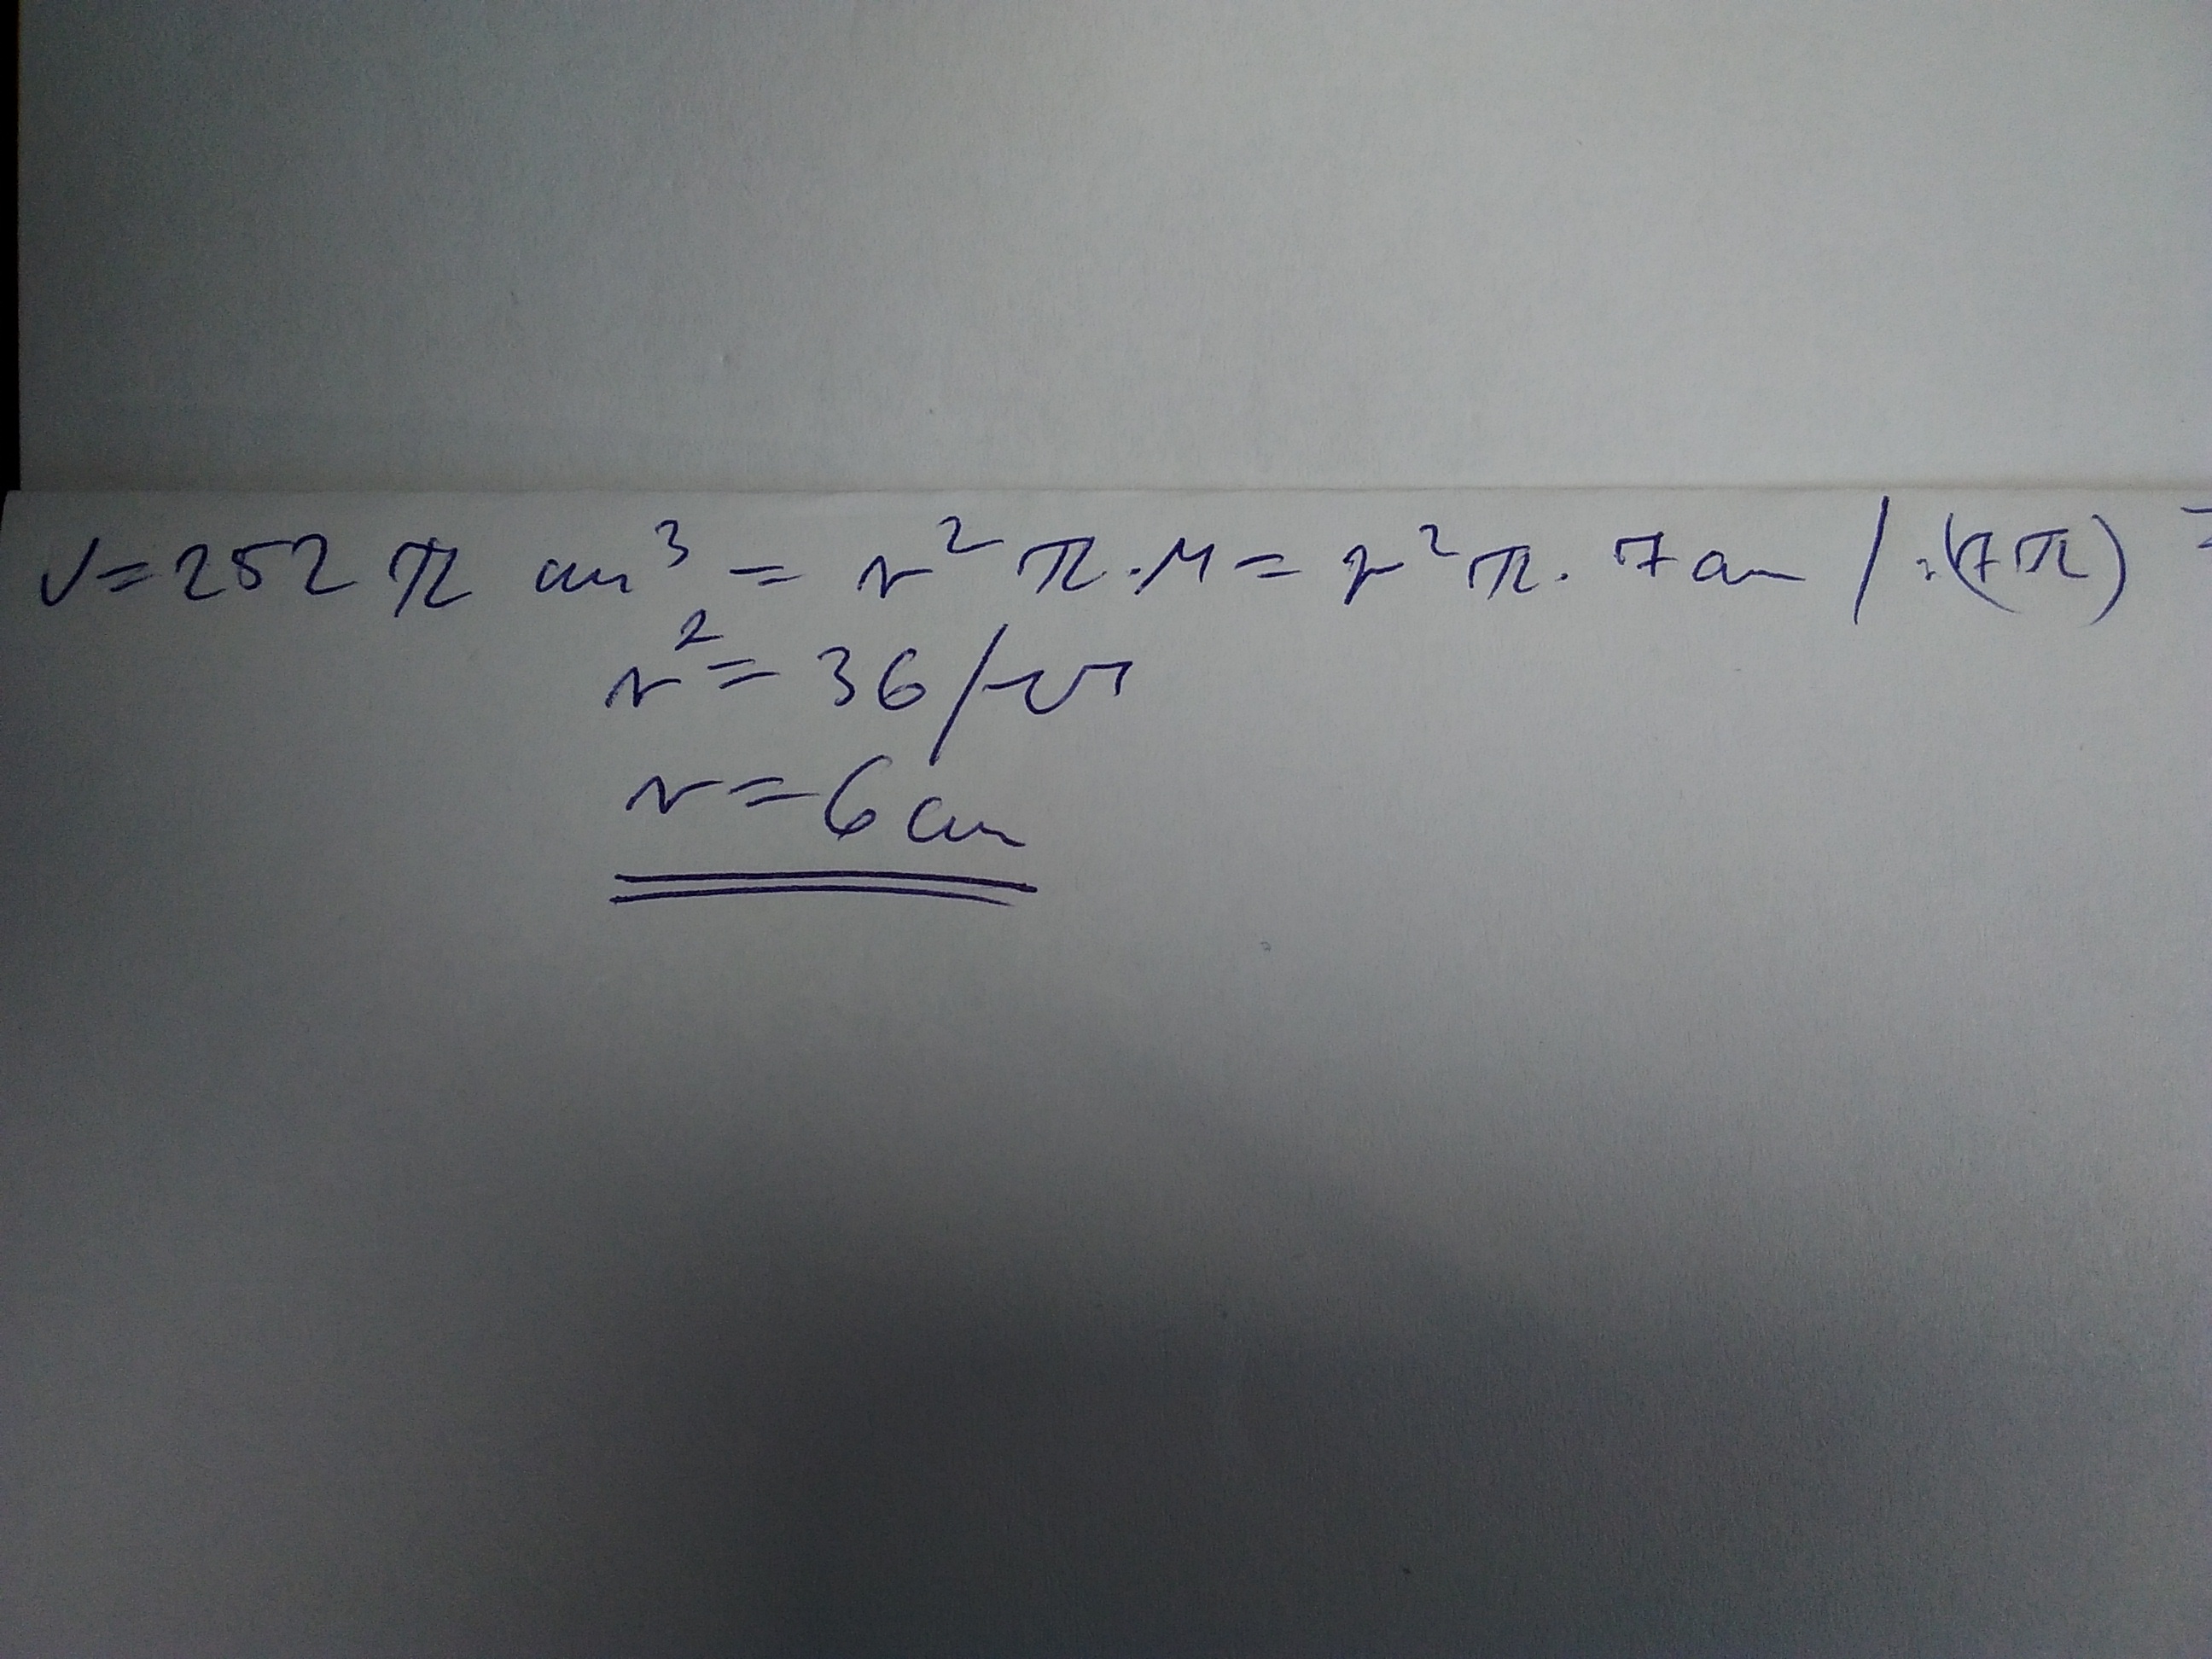 V=252 π cm³ = r² π·M = r² π· 7 cm / :(7π) =
r² = 36 /√
r = 6 cm